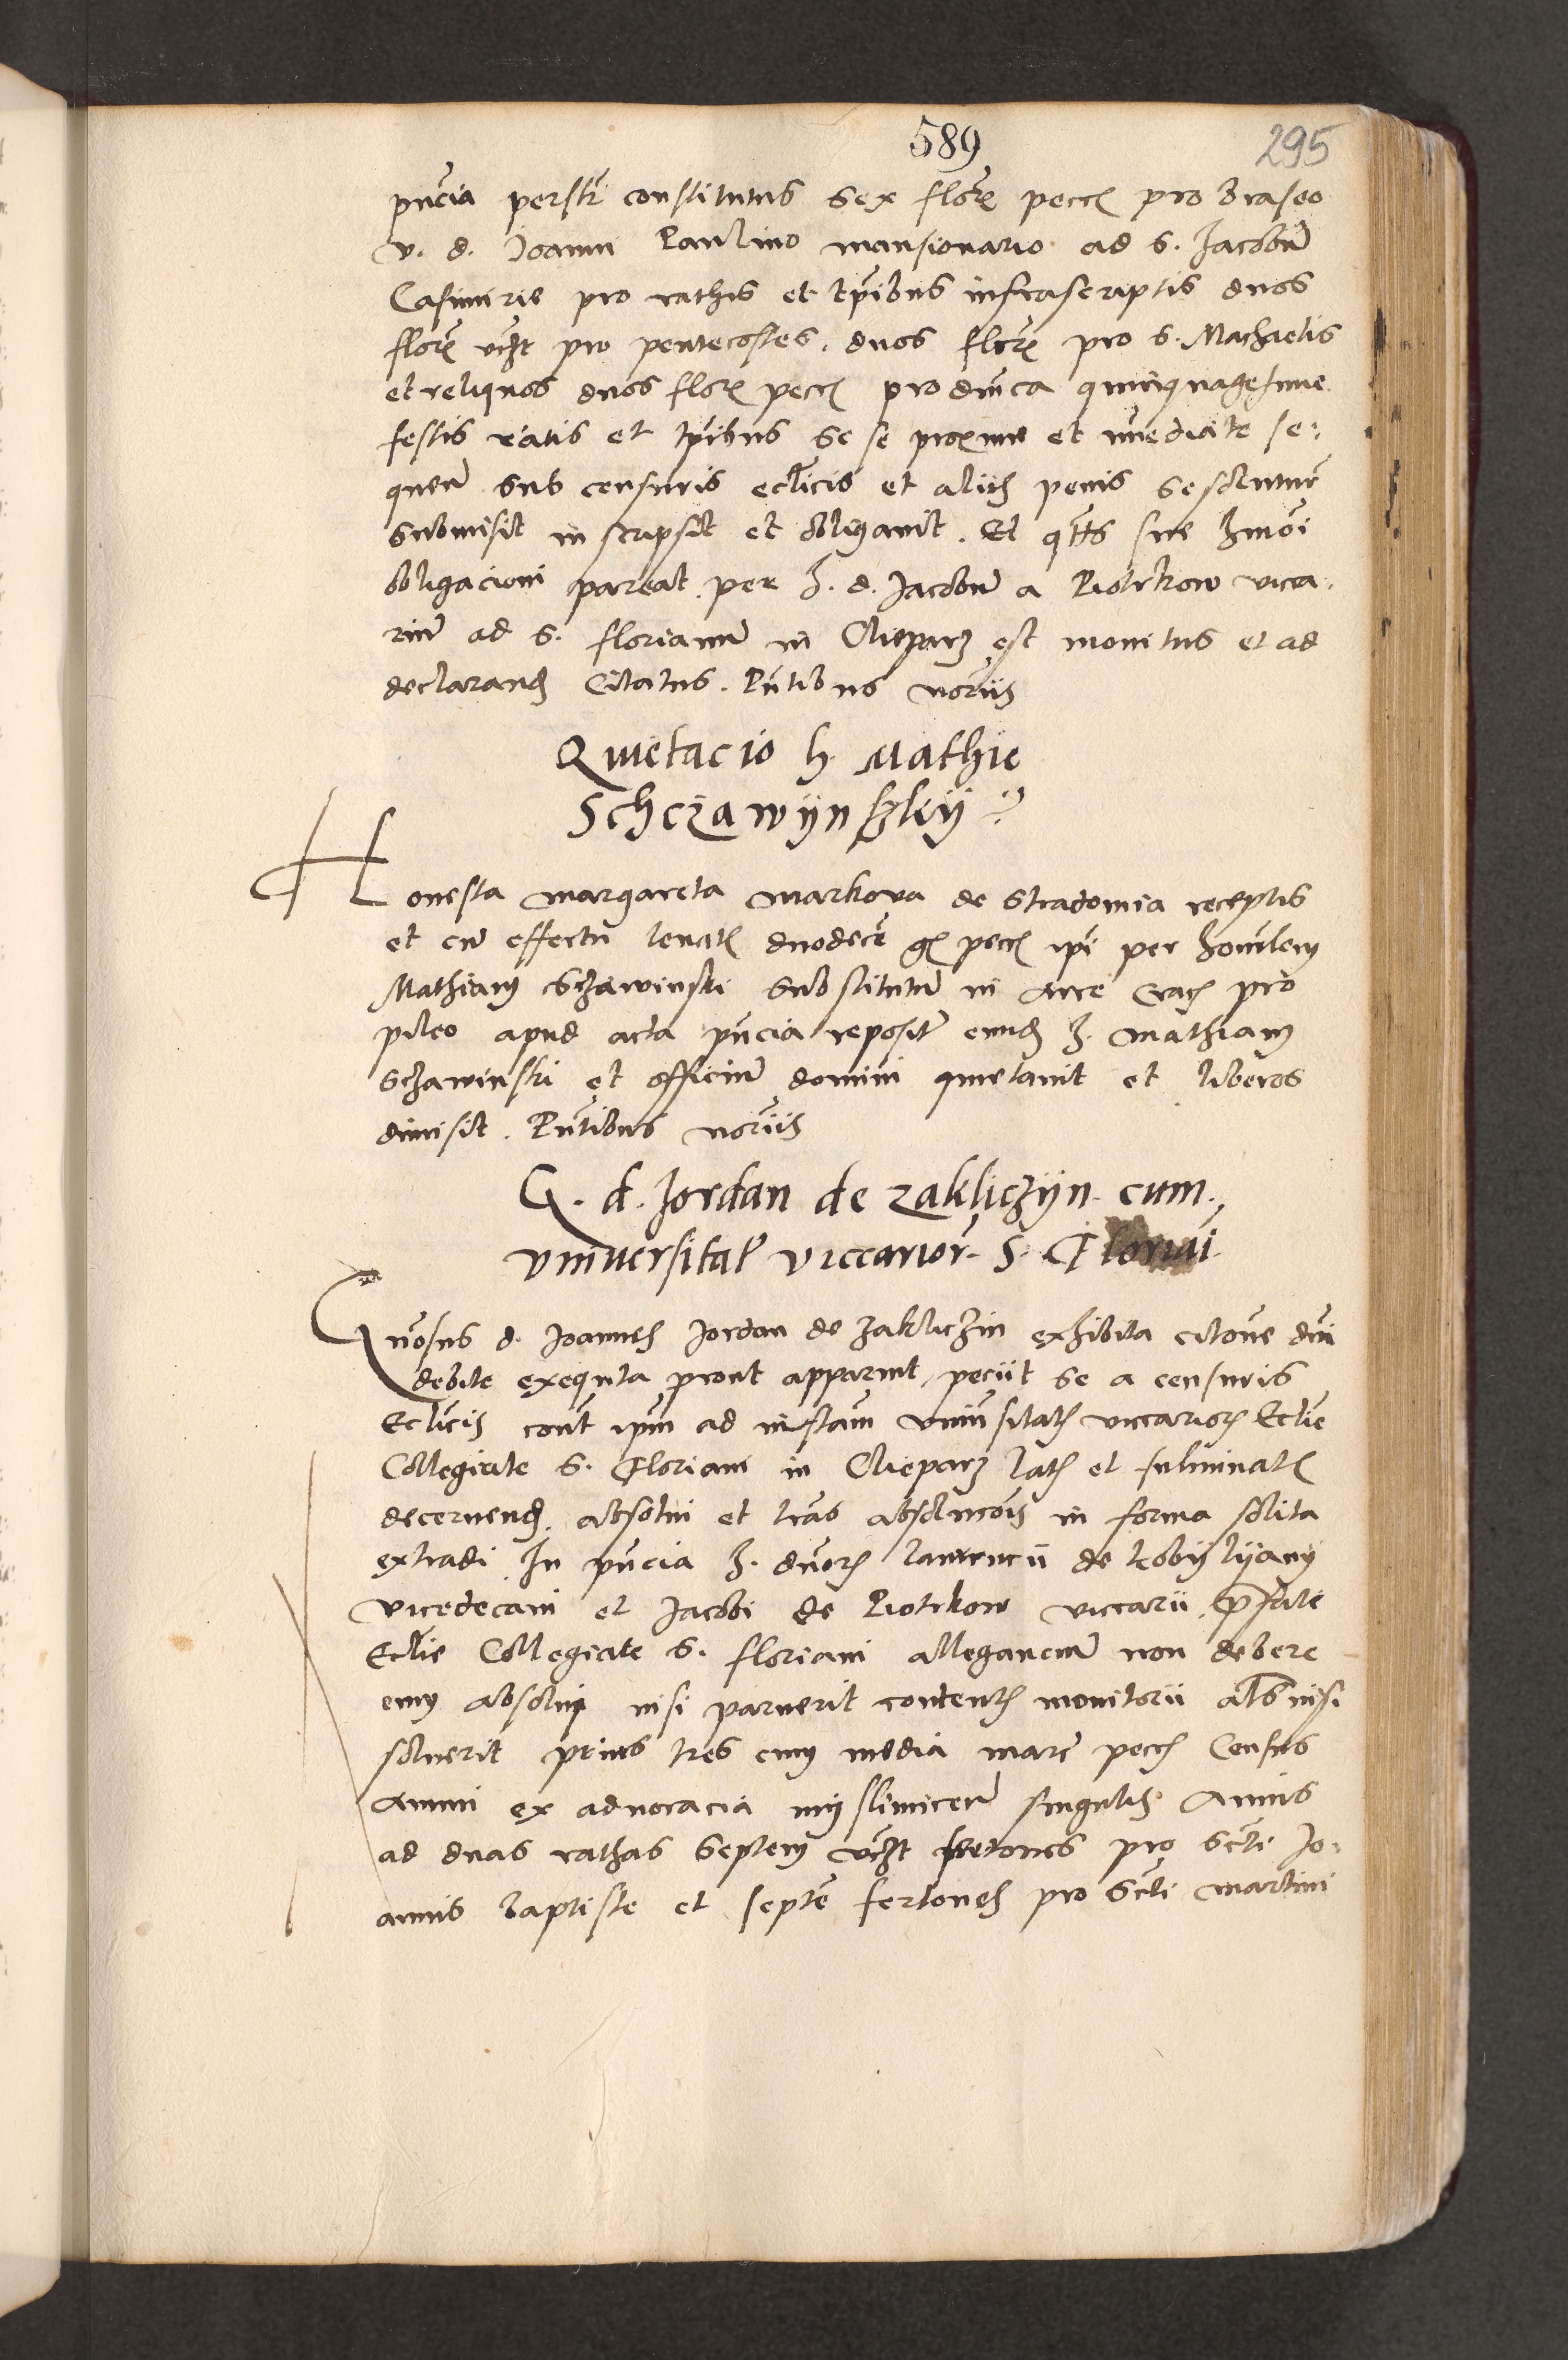 589
295
pñcia perslr constitutus sex floreñ pecc pro braseo
v. d. Joanni Paulino mansionario ad S. Jacobũ
Casimirie pro rathis et tpibus infrascriptis duos
floreñ vczt pro pentecostes. duos floreñ pro S. Machaelis
et reliquos duos floreñ pecc pro dnica quinquagesime
festis ratis et tpibus se se proxime et imediate se:
quen sub censuris ecclicis et aliis penis se soluturũ
submisit inscripsit et obligavit. Et qtts sue hmoi
obligacioni pareat per h. d. Jacobũ a Piotrkow vica.
riũ ad S. florianũ in Clieparz est monitus et ad
declarand Citatus. Pñtibus noriis
Quietacio h. Mathie
Schczawijnskij
Honesta Margareta Markowa de Stradomia receptis
et cũ effectu levatis duodecẽ gr pecc ipi per honũlem
Mathiam Sczawinski substitutũ in Arce Crac pro
pileo apud acta pñcia repositũ eund h. Mathiam
Sczawinski et officium domini quietavit et liberos
dimisit. Pñtibus noriis
G. d. Jordan de zakliczijn cum
vniuersitate viccarior. S. Floriani
Gñosus d. Joannes Jordan de zakliczin exhibita citõne dni
debite exequta prout apparuit, peciit se a censuris
Ecclicis cont ipm ad instam vniũsitatis viccariorũ Eclie
Collegiate S. Floriani in Clieparz latis et fulminatis
decernend. absolui et lras absolucõis in forma solita
extradi In pñcia h. dnorũ laurencii de kobijlijany
vicedecani et Jacobi de Piotrkow viccarii pfate
Eclie Collegiate S. floriani allegancium non debere
eum absolui nisi paruerit contentis monitorii als nisi
soluerit prius tres cum media marc pecc Census
Annui ex advocacia mijslimicen singulis Annis
ad duas rathas septem vczt fertones pro Scti Jo.
annis baptiste et septẽ fertones pro Scti Martini